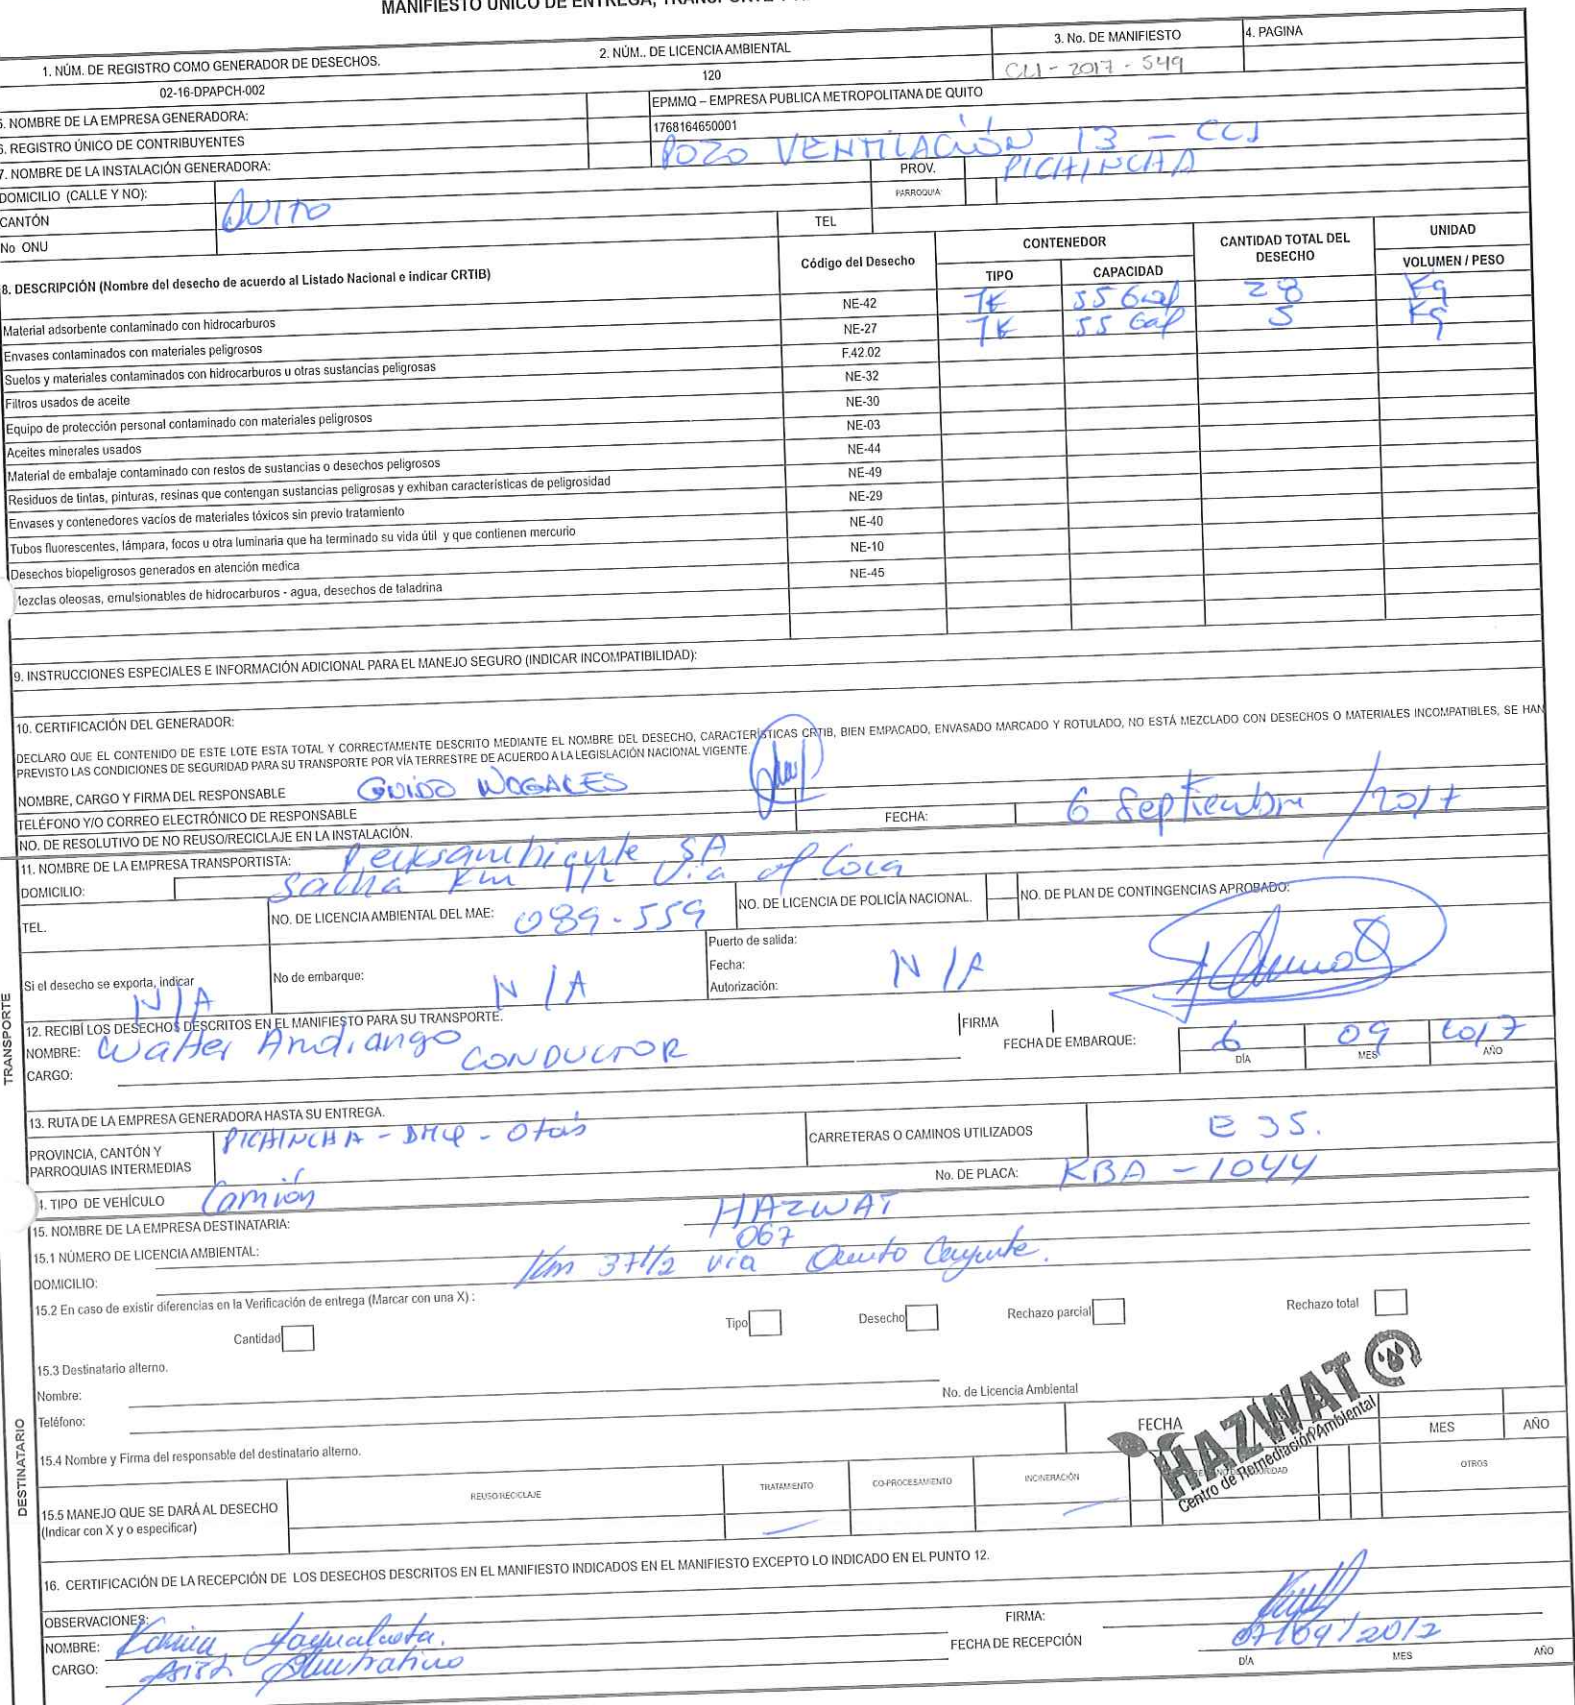 MANIFIESTO ÚNICO DE ENTREGA,
1. NÚM. DE REGISTRO COMO GENERADOR DE DESECHOS.
2. NÚM.. DE LICENCIA AMBIENTAL
3. No. DE MANIFIESTO
4. PAGINA
02-16-DPAPCH-002
120
CL1-2017-549
5. NOMBRE DE LA EMPRESA GENERADORA:
EPMMQ – EMPRESA PUBLICA METROPOLITANA DE QUITO
6. REGISTRO ÚNICO DE CONTRIBUYENTES
1768164650001
7. NOMBRE DE LA INSTALACIÓN GENERADORA:
POZO VENTILACIÓN 13 - CL1
DOMICILIO (CALLE Y NO):
PROV.
PICHINCHA
CANTÓN
QUITO
PARROQUIA
No ONU
TEL
8. DESCRIPCIÓN (Nombre del desecho de acuerdo al Listado Nacional e indicar CRTIB)
Código del Desecho
CONTENEDOR
TIPO
CAPACIDAD
CANTIDAD TOTAL DEL DESECHO
UNIDAD
VOLUMEN / PESO
Material adsorbente contaminado con hidrocarburos NE-42 TK 55 Gal 28 Kg
Envases contaminados con materiales peligrosos NE-27 TK 55 Gal 5 Kg
Suelos y materiales contaminados con hidrocarburos u otras sustancias peligrosas F.42.02
Filtros usados de aceite NE-32
Equipo de protección personal contaminado con materiales peligrosos NE-30
Aceites minerales usados NE-03
Material de embalaje contaminado con restos de sustancias o desechos peligrosos NE-44
Residuos de tintas, pinturas, resinas que contengan sustancias peligrosas y exhiban características de peligrosidad NE-49
Envases y contenedores vacíos de materiales tóxicos sin previo tratamiento NE-29
Tubos fluorescentes, lámpara, focos u otra luminaria que ha terminado su vida útil y que contienen mercurio NE-40
Desechos biopeligrosos generados en atención medica NE-10
lezclas oleosas, emulsionables de hidrocarburos - agua, desechos de taladrina NE-45
9. INSTRUCCIONES ESPECIALES E INFORMACIÓN ADICIONAL PARA EL MANEJO SEGURO (INDICAR INCOMPATIBILIDAD):
10. CERTIFICACIÓN DEL GENERADOR:
DECLARO QUE EL CONTENIDO DE ESTE LOTE ESTA TOTAL Y CORRECTAMENTE DESCRITO MEDIANTE EL NOMBRE DEL DESECHO, CARACTERÍSTICAS CRTIB, BIEN EMPACADO, ENVASADO MARCADO Y ROTULADO, NO ESTÁ MEZCLADO CON DESECHOS O MATERIALES INCOMPATIBLES, SE HAN
PREVISTO LAS CONDICIONES DE SEGURIDAD PARA SU TRANSPORTE POR VÍA TERRESTRE DE ACUERDO A LA LEGISLACIÓN NACIONAL VIGENTE.
NOMBRE, CARGO Y FIRMA DEL RESPONSABLE
GUIDO NOGALES
TELÉFONO Y/O CORREO ELECTRÓNICO DE RESPONSABLE
FECHA:
6 Septiembre /2017
NO. DE RESOLUTIVO DE NO REUSO/RECICLAJE EN LA INSTALACIÓN.
TRANSPORTE
11. NOMBRE DE LA EMPRESA TRANSPORTISTA:
SA
DOMICILIO:
Sacha Km 1 1/2 Via al Coca
TEL.
NO. DE LICENCIA AMBIENTAL DEL MAE:
089-559
NO. DE LICENCIA DE POLICÍA NACIONAL.
NO. DE PLAN DE CONTINGENCIAS APROBADO:
Si el desecho se exporta, indicar
N/A
No de embarque:
N/A
Puerto de salida:
Fecha:
Autorización:
N/A
12. RECIBÍ LOS DESECHOS DESCRITOS EN EL MANIFIESTO PARA SU TRANSPORTE.
NOMBRE: Walter Andrango
CARGO: CONDUCTOR
FIRMA
FECHA DE EMBARQUE:
6 09 2017
DÍA MES AÑO
13. RUTA DE LA EMPRESA GENERADORA HASTA SU ENTREGA.
PROVINCIA, CANTÓN Y PARROQUIAS INTERMEDIAS
PICHINCHA - DMQ -
CARRETERAS O CAMINOS UTILIZADOS
E 35.
4. TIPO DE VEHÍCULO Camión
No. DE PLACA: KBA - 1044
DESTINATARIO
15. NOMBRE DE LA EMPRESA DESTINATARIA:
HAZWAT
15.1 NÚMERO DE LICENCIA AMBIENTAL:
067
DOMICILIO:
Km 37 1/2 via Quito Cayambe.
15.2 En caso de existir diferencias en la Verificación de entrega (Marcar con una X) :
Cantidad
Tipo
Desecho
Rechazo parcial
Rechazo total
15.3 Destinatario alterno.
Nombre:
No. de Licencia Ambiental
Teléfono:
FECHA
MES
AÑO
HAZWAT
Centro de Remediación Ambiental
15.4 Nombre y Firma del responsable del destinatario alterno.
15.5 MANEJO QUE SE DARÁ AL DESECHO
(Indicar con X y o especificar)
REUSO/RECICLAJE
TRATAMIENTO
CO-PROCESAMIENTO
INCINERACIÓN
OTROS
16. CERTIFICACIÓN DE LA RECEPCIÓN DE LOS DESECHOS DESCRITOS EN EL MANIFIESTO INDICADOS EN EL MANIFIESTO EXCEPTO LO INDICADO EN EL PUNTO 12.
OBSERVACIONES:
FIRMA:
NOMBRE: Karina
CARGO:
FECHA DE RECEPCIÓN
DÍA MES AÑO